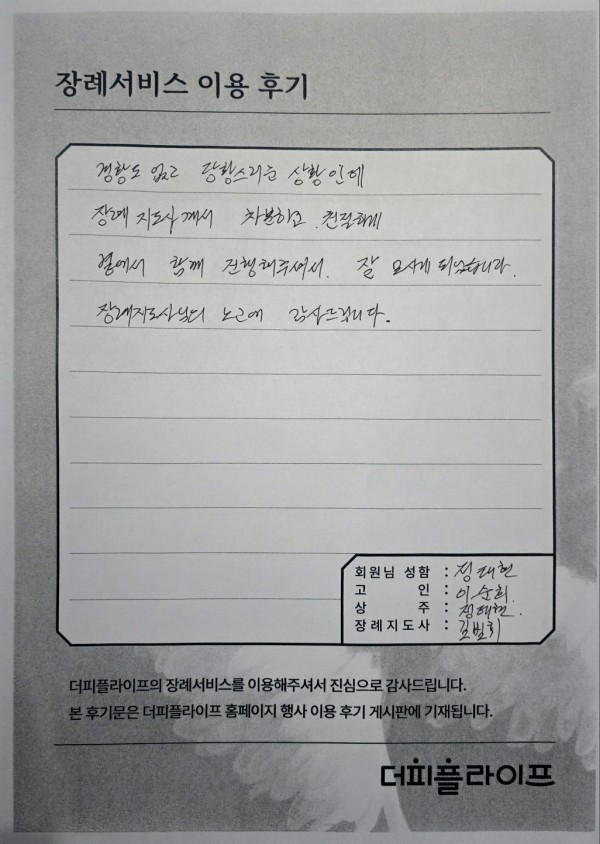 장례서비스 이용 후기
경황도 없고 당황스러운 상황인데
장례 지도사께서 차분하고 친절하게
옆에서 함께 진행해주셔서 잘 모시게 되었습니다.
장례지도사님의 노고에 감사드립니다.
회원님 성함 : 정대현
고 인 : 이순희.
상 주 : 정대현.
장례지도사 :
더피플라이프의 장례서비스를 이용해주셔서 진심으로 감사드립니다.
본 후기문은 더피플라이프 홈페이지 행사 이용 후기 게시판에 기재됩니다.
더피플라이프